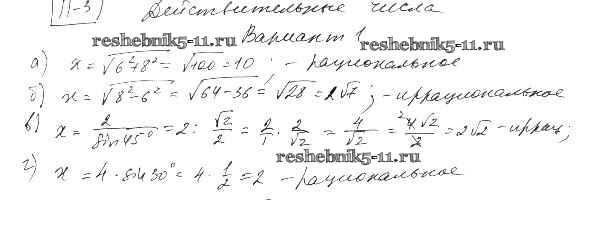 П-3 Действительные числа
reshebnik5-11.ru Вариант 1
а) x = √6²+8² = √100 = 10 ; - рациональное
б) x = √8²-6² = √64-36 = √28 = 2√7 ; - иррациональное
в) x = 2/sin45° = 2 : √2/2 = 2/1 · 2/√2 = 4/√2 = 4√2/2 = 2√2 - иррац;
reshebnik5-11.ru
г) x = 4 · sin30° = 4 · 1/2 = 2 - рациональное